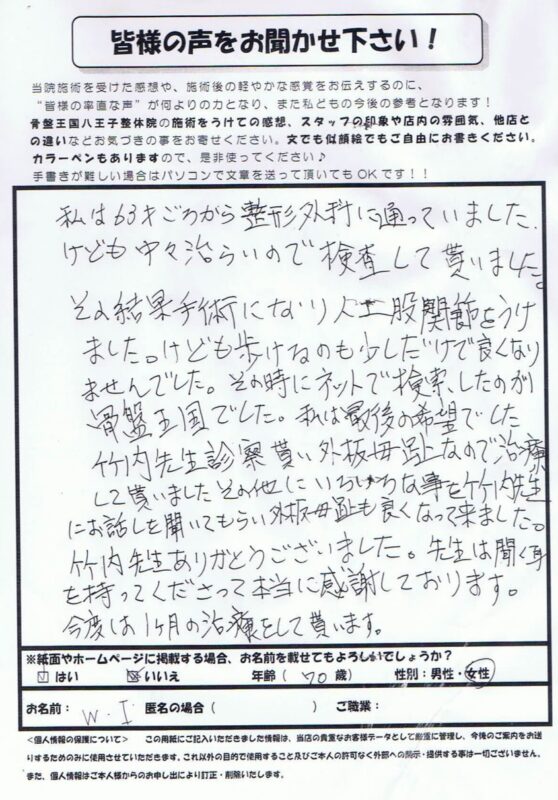 皆様の声をお聞かせ下さい！
当院施術を受けた感想や、施術後の軽やかな感覚をお伝えするのに、
“皆様の率直な声”が何よりの力となり、また私どもの今後の参考となります！
骨盤王国八王子整体院の施術をうけての感想、スタッフの印象や店内の雰囲気、他店と
の違いなどお気づきの事をお寄せください。文でも似顔絵でもご自由にお書きください。
カラーペンもありますので、是非使ってください♪
手書きが難しい場合はパソコンで文章を送って頂いてもOKです！！
私は63才ごろから整形外科に通っていました.
けども中々治らいので検査して貰いました。
その結果手術になり人工股関節をうけ
ました。けども歩けるのも少しだけで良くなり
ませんでした。その時にネットで検索したのが
骨盤王国でした。私は最後の希望でした
竹内先生診察貰い外板母趾なので治療
して貰いましたその他にいろいろな事を竹内先生
にお話しを聞いてもらい外板母趾も良くなって来ました。
竹内先生ありがとうございました。先生は聞く耳
を持ってくださって本当に感謝しております。
今度は1ヶ月の治療をして貰います。
※紙面やホームページに掲載する場合、お名前を載せてもよろしいでしょうか？
はい いいえ 年齢（70歳） 性別：男性・女性
お名前： W.I 匿名の場合（ ） ご職業：
<個人情報の保護について> この用紙にご記入いただきました情報は、当店の貴重なお客様データとして厳重に管理し、今後のご案内をお送
りするためのみに使用させていただきます。これ以外の目的で使用すること及びご本人の許可なく外部への開示・提供する事は一切ございません。
また、個人情報はご本人様からのお申し出により訂正・削除いたします。